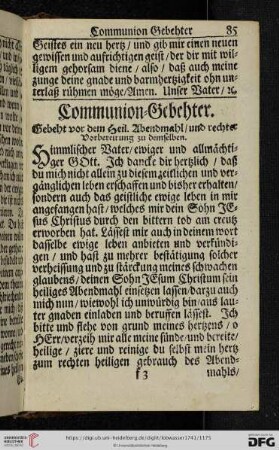 Communion Gebehter 85
Geistes ein neu hertz/ und gib mir einen neuen
gewissen und aufrichtigen geist/ der dir mit wil-
ligem gehorsam diene/ also/ daß auch meine
zunge deine gnade und barmhertzigkeit ohn un-
terlaß rühmen möge/ Amen. Unser Vater/ ꝛc.
Communion-Gebehter.
Gebeht vor dem Heil. Abendmahl/ und rechte
Vorbereitung zu demselben.
Himmlischer Vater/ ewiger und allmächti-
ger GOtt. Ich dancke dir hertzlich/ daß
du mich nicht allein zu diesem zeitlichen und ver-
gänglichen leben erschaffen und bisher erhalten/
sondern auch das geistliche ewige leben in mir
angefangen hast/ welches mir dein Sohn JE-
sus Christus durch den bittern tod am creutz
erworben hat. Lässest mir auch in deinem wort
dasselbe ewige leben anbieten und verkündi-
gen/ und hast zu mehrer bestätigung solcher
verheissung und zu stärckung meines schwachen
glaubens/ deinen Sohn JEsum Christum sein
heiliges Abendmahl einsetzen lassen/ darzu auch
mich nun/ wiewohl ich unwürdig bin/ aus lau-
ter gnaden einladen und beruffen lässest. Ich
bitte und flehe von grund meines hertzens/ o
HErr/ verzeih mir alle meine sünde/ und bereite/
heilige/ ziere und reinige du selbst mein hertz
zum rechten heiligen gebrauch des Abend-
f 3 mahls/
http://digi.ub.uni-heidelberg.de/diglit/ldowasser1741/1175
© Universitätsbibliothek Heidelberg
gefördert durch die
DFG